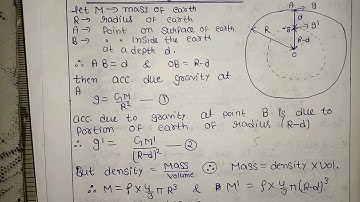 let M → mass of earth
R → radius of earth
A → Point on surface of earth
B → " inside the earth
at a depth d.
∴ AB = d & OB = R-d
then acc. due gravity at
A
g = GM/R² — ①
acc. due to gravity at point B is due to
portion of earth of radius (R-d)
∴ g' = GM'/(R-d)² — ②
But density = Mass/Volume ∴ Mass = density × vol.
∴ M = ρ × 4/3 π R³ & M' = ρ × 4/3 π (R-d)³
A
g
d
B
g'
R
R-d
O